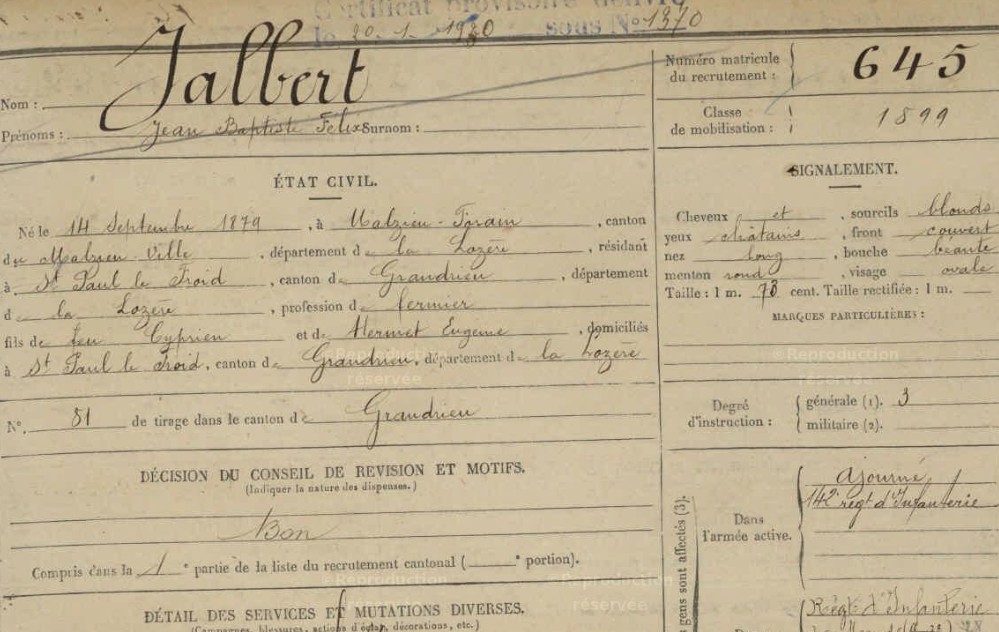 Certificat provisoire délivré
le 20. 1. 1930 sous No 1370
Nom : Jalbert
Prénoms : Jean Baptiste Félix Surnom :
Numéro matricule du recrutement : 645
Classe de mobilisation : 1899
ÉTAT CIVIL.
Né le 14 Septembre 1879, à Malzieu-Forain, canton
du Malzieu-Ville, département de la Lozère, résidant
à St Paul le Froid, canton de Grandrieu, département
de la Lozère, profession de fermier
fils de feu Cyprien et de Hermet Eugénie, domiciliés
à St Paul le Froid, canton de Grandrieu, département de la Lozère
N° 81 de tirage dans le canton de Grandrieu
DÉCISION DU CONSEIL DE REVISION ET MOTIFS.
(Indiquer la nature des dispenses.)
Bon
Compris dans la 1e partie de la liste du recrutement cantonal ( e portion).
DÉTAIL DES SERVICES ET MUTATIONS DIVERSES.
(Campagnes, blessures, actions d'éclat, décorations, etc.)
SIGNALEMENT.
Cheveux et, sourcils blonds
yeux châtains, front couvert
nez long, bouche béante
menton rond, visage ovale
Taille : 1 m. 73 cent. Taille rectifiée : 1 m.
MARQUES PARTICULIÈRES :
Degré d'instruction : générale (1). 3
militaire (2).
gens sont affectés (3).
Dans l'armée active.
Ajourné
142e régt d'Infanterie
Régt d'Infanterie
Reproduction réservée
Reproduction
Reproduction réservée
Reproduction réservée